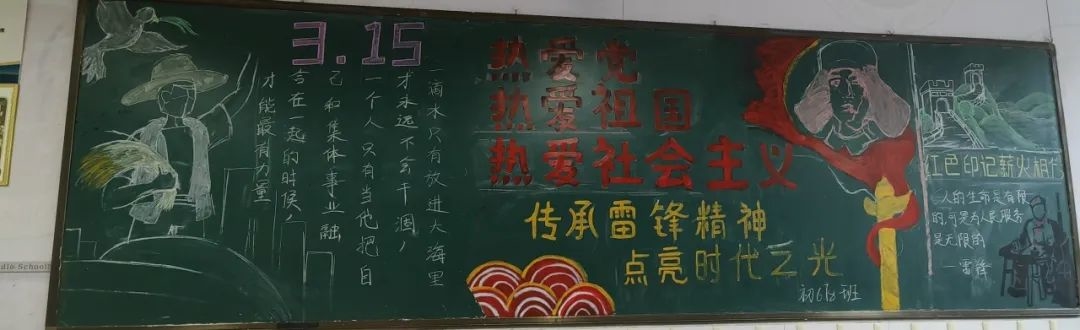 3.15
一滴水只有放进大海里
才永远不会干涸，
一个人只有当他把自
己和集体事业融
合在一起的时候，
才能最有力量
热爱党
热爱祖国
热爱社会主义
传承雷锋精神
点亮时代之光
班
红色印记薪火相传
人的生命是有限
的，可是为人民服务
是无限的
—雷锋